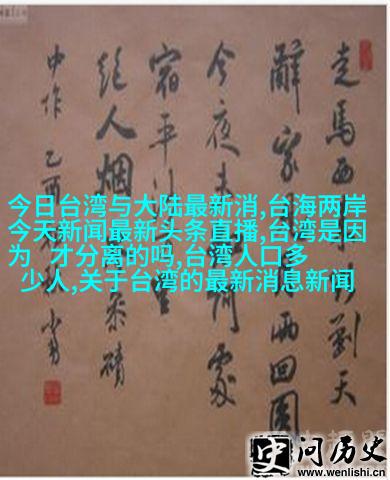 走馬西 到天
辭家 两回圆
今夜未 處
宿平
絕人烟 参磧
中作 乙酉
今日台湾与大陆最新消,台海两岸
今天新闻最新头条直播,台湾是因
为 才分离的吗,台湾人口多
少人,关于台湾的最新消息新闻
史 问历史
www.wenlishi.cn